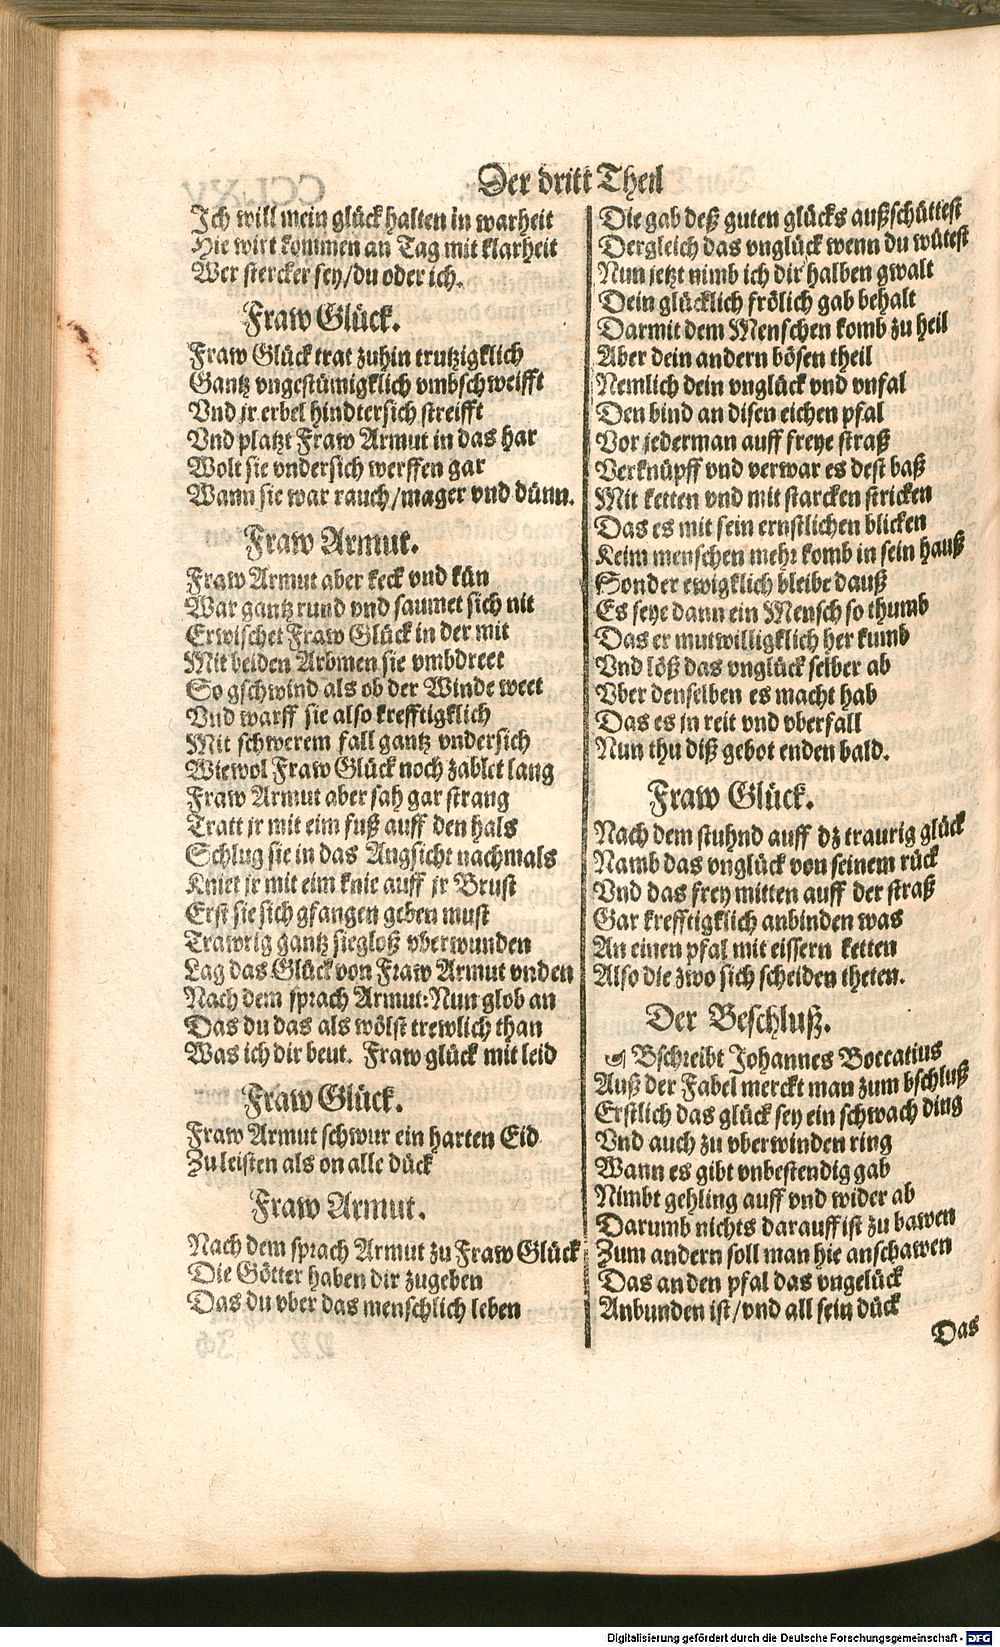 Der dritt Theil
Ich will mein glück halten in warheit
Hie wirt kommen an Tag mit klarheit
Wer stercker sey/du oder ich.
Fraw Glück.
Fraw Glück trat zuhin trutzigklich
Gantz vngestümigklich vmbschweifft
Vnd jr erbel hindtersich streifft
Vnd platzt Fraw Armut in das har
Wolt sie vndersich werffen gar
Wann sie war rauch/mager vnd dünn.
Fraw Armut.
Fraw Armut aber keck vnd kün
War gantz rund vnd saumet sich nit
Erwischet Fraw Glück in der mit
Mit beiden Arbmen sie vmbdreet
So gschwind als ob der Winde weet
Vnd warff sie also krefftigklich
Mit schwerem fall gantz vndersich
Wiewol Fraw Glück noch zablet lang
Fraw Armut aber sah gar strang
Tratt jr mit eim fuß auff den hals
Schlug sie in das Angsicht nachmals
Kniet jr mit eim knie auff jr Brust
Erst sie sich gfangen geben must
Trawrig gantz siegloß vberwunden
Lag das Glück von Fraw Armut vnden
Nach dem sprach Armut: Nun glob an
Das du das als wölst trewlich than
Was ich dir beut. Fraw glück mit leid
Fraw Glück.
Fraw Armut schwur ein harten Eid
Zu leisten als on alle dück
Fraw Armut.
Nach dem sprach Armut zu Fraw Glück
Die Götter haben dir zugeben
Das du vber das menschlich leben
Die gab deß guten glücks außschüttest
Dergleich das vnglück wenn du wütest
Nun jetzt nimb ich dir halben gwalt
Dein glücklich frölich gab behalt
Darmit dem Menschen komb zu heil
Aber dein andern bösen theil
Nemlich dein vnglück vnd vnfal
Den bind an disen eichen pfal
Vor jederman auff freye straß
Verknüpff vnd verwar es dest baß
Mit ketten vnd mit starcken stricken
Das es mit sein ernstlichen blicken
Keim menschen mehr komb in sein hauß
Sonder ewigklich bleibe dauß
Es seye dann ein Mensch so thumb
Das er mutwilligklich her kumb
Vnd löß das vnglück selber ab
Vber denselben es macht hab
Das es jn reit vnd vberfall
Nun thu diß gebot enden bald.
Fraw Glück.
Nach dem stuhnd auff dz traurig glück
Namb das vnglück von seinem rück
Vnd das frey mitten auff der straß
Gar krefftigklich anbinden was
An einen pfal mit eissern ketten
Also die zwo sich scheiden theten.
Der Beschluß.
☙ Bschreibt Johannes Boccatius
Auß der Fabel merckt man zum bschluß
Erstlich das glück sey ein schwach ding
Vnd auch zu vberwinden ring
Wann es gibt vnbestendig gab
Nimbt gehling auff vnd wider ab
Darumb nichts darauff ist zu bawen
Zum andern soll man hie anschawen
Das an den pfal das vngelück
Anbunden ist/vnd all sein dück
Das
Digitalisierung gefördert durch die Deutsche Forschungsgemeinschaft - DFG